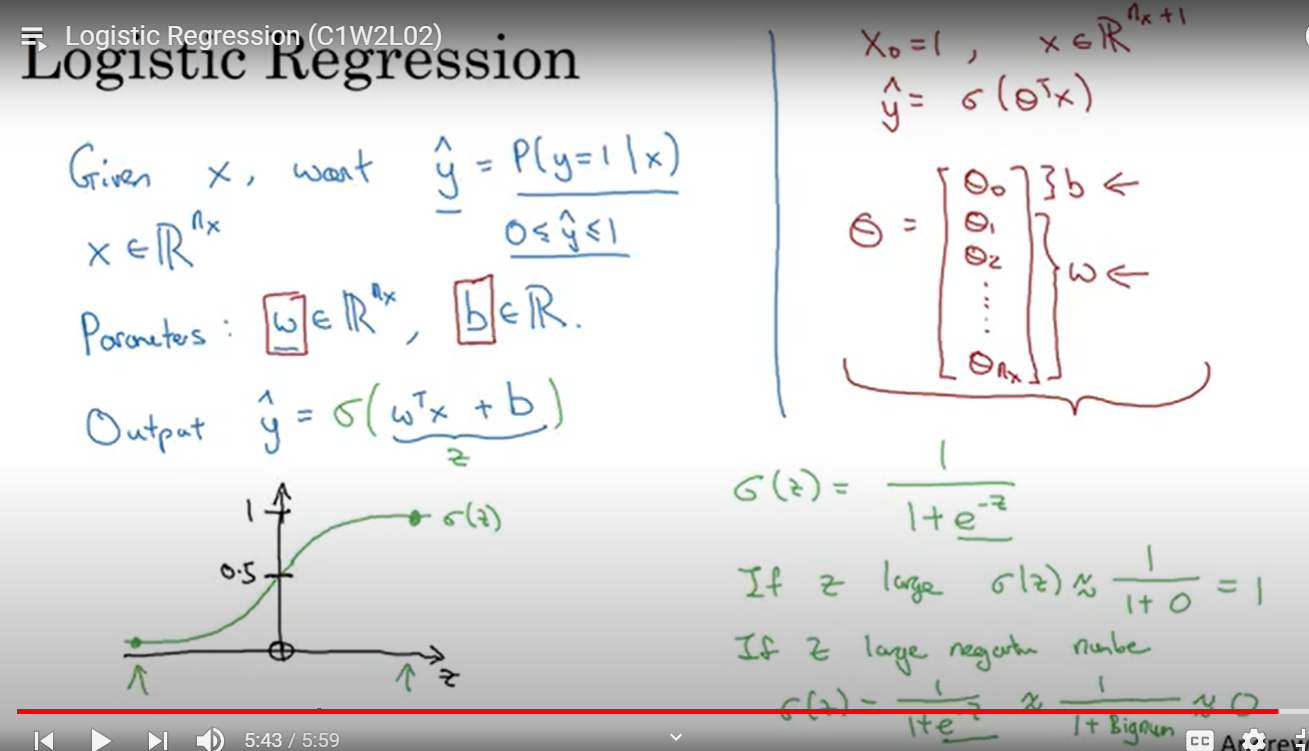 Logistic Regression (C1W2L02)
Logistic Regression
Given x, want ŷ = P(y=1|x)
x ∈ ℝⁿˣ
0 ≤ ŷ ≤ 1
Parameters: w ∈ ℝⁿˣ, b ∈ ℝ.
Output ŷ = σ(wᵀx + b)
z
1
σ(z)
0.5
z
x₀ = 1, x ∈ ℝⁿˣ⁺¹
ŷ = σ(θᵀx)
θ = [θ₀ } b ←
θ₁
θ₂
⋮
θₙₓ] } w ←
σ(z) = 1 / (1 + e⁻ᶻ)
If z large σ(z) ≈ 1 / (1 + 0) = 1
If z large negative number
σ(z) = 1 / (1 + e⁻ᶻ) ≈ 1 / (1 + Bignum) ≈ 0
5:43 / 5:59
CC